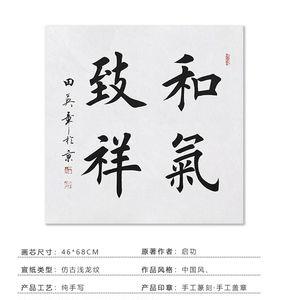 和氣
致祥
田英章於京
画芯尺寸：46*68CM
原著作者：启功
宣纸类型：仿古浅龙纹
作品风格：中国风、
产品工艺：纯手写
产品印章：手工篆刻·手工盖章